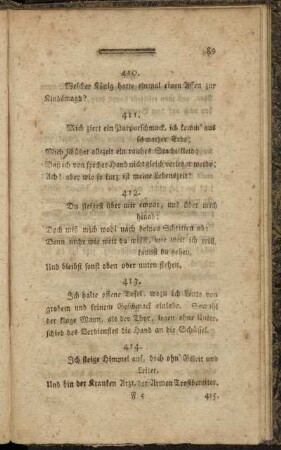 89
410.
Welcher König hatte einmal einen Affen zur
Kindsmagd?
411.
Mich ziert ein Purpurschmuck, ich komm' aus
schwarzer Erde;
Mich schützet allezeit ein rauhes Stachelkleid;
Daß ich von frecher Hand nicht gleich verletzet werde;
Ach! aber wie so kurz ist meine Lebenszeit!
412.
Du steigest über mir empor, und über mich
hinab;
Doch miß mich wohl nach deinen Schritten ab:
Denn nicht wie weit du willst, wie weit ich will,
kannst du gehen,
Und bleibst sonst oben oder unten stehen.
413.
Ich halte offene Tafel, wozu ich Leute von
grobem und feinem Geschmack einlade. Sowohl
der kluge Mann, als der Thor, legen ohne Unter-
schied des Verdienstes die Hand an die Schüssel.
414.
Ich steige Himmel auf, doch ohn' Geleit und
Leiter,
Und bin der Kranken Arzt, der Armen Trostbereiter.
F 5 415.